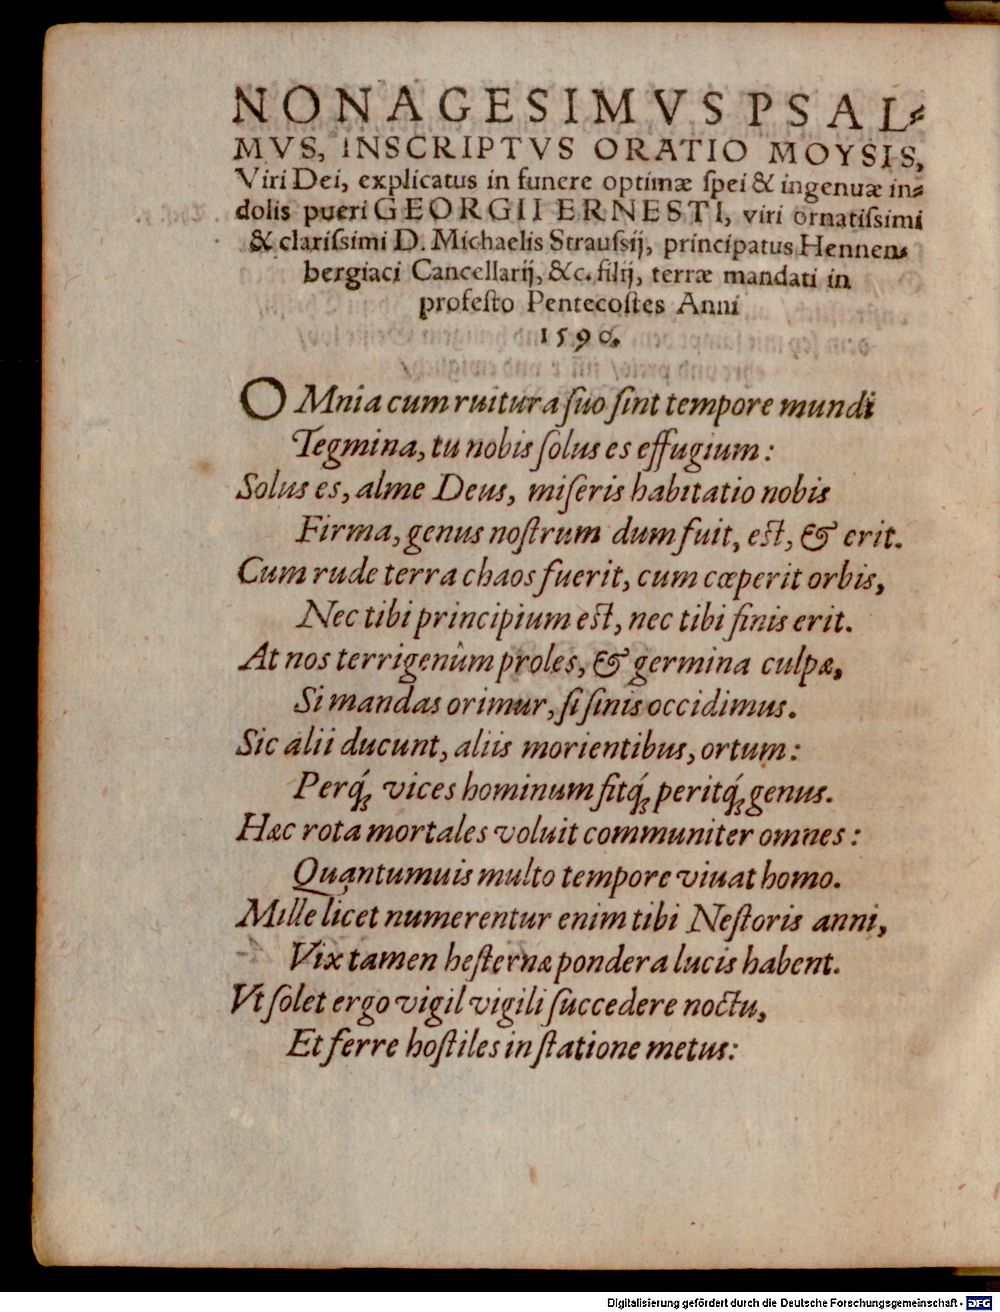 NONAGESIMVS PSAL-
MVS, INSCRIPTVS ORATIO MOYSIS,
Viri Dei, explicatus in funere optimæ ſpei & ingenuæ in-
dolis pueri GEORGII ERNESTI, viri ornatiſsimi
& clariſsimi D. Michaelis Strauſsij, principatus Hennen-
bergiaci Cancellarij, &c. filij, terræ mandati in
profeſto Pentecoſtes Anni
1590.
OMnia cum ruitura ſuo ſint tempore mundi
Tegmina, tu nobis ſolus es effugium:
Solus es, alme Deus, miſeris habitatio nobis
Firma, genus noſtrum dum fuit, eſt, & erit.
Cum rude terra chaos fuerit, cum cœperit orbis,
Nec tibi principium eſt, nec tibi finis erit.
At nos terrigenûm proles, & germina culpæ,
Si mandas orimur, ſi ſinis occidimus.
Sic alii ducunt, aliis morientibus, ortum:
Perq́; vices hominum fitq́; peritq́; genus.
Hæc rota mortales voluit communiter omnes:
Quantumuis multo tempore viuat homo.
Mille licet numerentur enim tibi Neſtoris anni,
Vix tamen heſternæ pondera lucis habent.
Vt ſolet ergo vigil vigili ſuccedere noctu,
Et ferre hoſtiles in ſtatione metus:
Digitalisierung gefördert durch die Deutsche Forschungsgemeinschaft - DFG